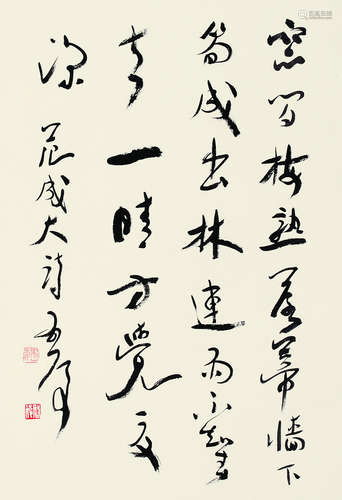 窗間梅熟落蒂墙下
筍成出林連雨不知春
去一晴方覺夏
深 范成大詩